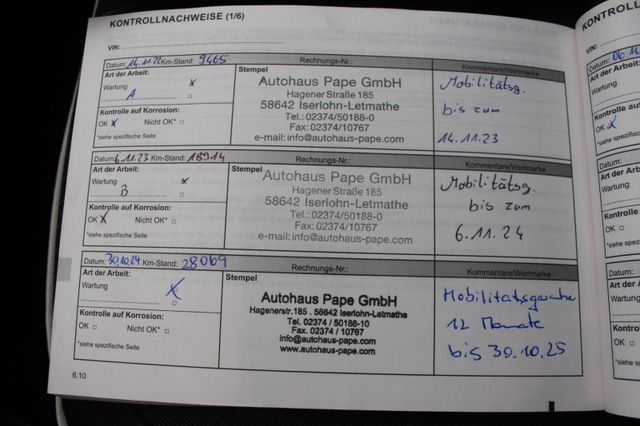 KONTROLLNACHWEISE (1/6)
VIN:
Datum: 14.11.22 Km-Stand: 9465 Rechnungs-Nr.: Kommentare/Wertmarke
Art der Arbeit: x
Wartung
A
Kontrolle auf Korrosion:
OK x Nicht OK*
*siehe spezifische Seite
Stempel
Autohaus Pape GmbH
Hagener Straße 185
58642 Iserlohn-Letmathe
Tel.: 02374/50188-0
Fax: 02374/10767
e-mail: info@autohaus-pape.com
Mobilitätsg.
bis zum
14.11.23
Datum: 6.11.23 Km-Stand: 18914 Rechnungs-Nr.: Kommentare/Wertmarke
Art der Arbeit:
Wartung x
B
Kontrolle auf Korrosion:
OK x Nicht OK*
*siehe spezifische Seite
Stempel
Autohaus Pape GmbH
Hagener Straße 185
58642 Iserlohn-Letmathe
Tel.: 02374/50188-0
Fax: 02374/10767
e-mail: info@autohaus-pape.com
Mobilitätsg.
bis zum
6.11.24
Datum: 30.10.24 Km-Stand: 28069 Rechnungs-Nr.: Kommentare/Wertmarke
Art der Arbeit:
Wartung x
Kontrolle auf Korrosion:
OK Nicht OK*
*siehe spezifische Seite
Stempel
Autohaus Pape GmbH
Hagenerstr. 185 . 58642 Iserlohn-Letmathe
Tel. 02374 / 50188-10
Fax. 02374 / 10767
info@autohaus-pape.com
www.autohaus-pape.com
Mobilitätsgarantie
12 Monate
bis 30.10.25
6.10
KONTROLL
VIN:
Datum:
Art der
Wartung
Kontrolle
OK x
*siehe